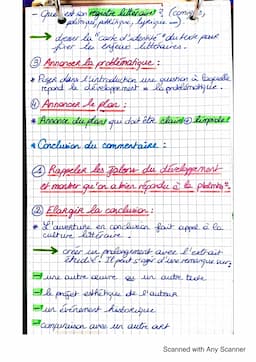 - Quel est son registre littéraire? (comique,
pathétique, lyrique ...)
→ dresser la "carte d'identité" du texte pour
fixer les enjeux littéraires.
③ Annoncer la problématique :
* Poser dans l'introduction une question à laquelle
répond le développement = la problématique.
④ Annoncer le plan :
* Annonce du plan qui doit être clair et limpide!
* Conclusion du commentaire :
① Rappeler les jalons du développement
et montrer qu'on a bien répondu à la pbtmtq°.
② Elargir la conclusion :
* L'ouverture en conclusion fait appel à la
culture littéraire.
→ créer un prolongement avec l'extrait
étudié. Il peut s'agir d'une remarque sur:
une autre œuvre ou un autre texte
le projet esthétique de l'auteur
un événement historique
comparaison avec un autre art
Scanned with Any Scanner